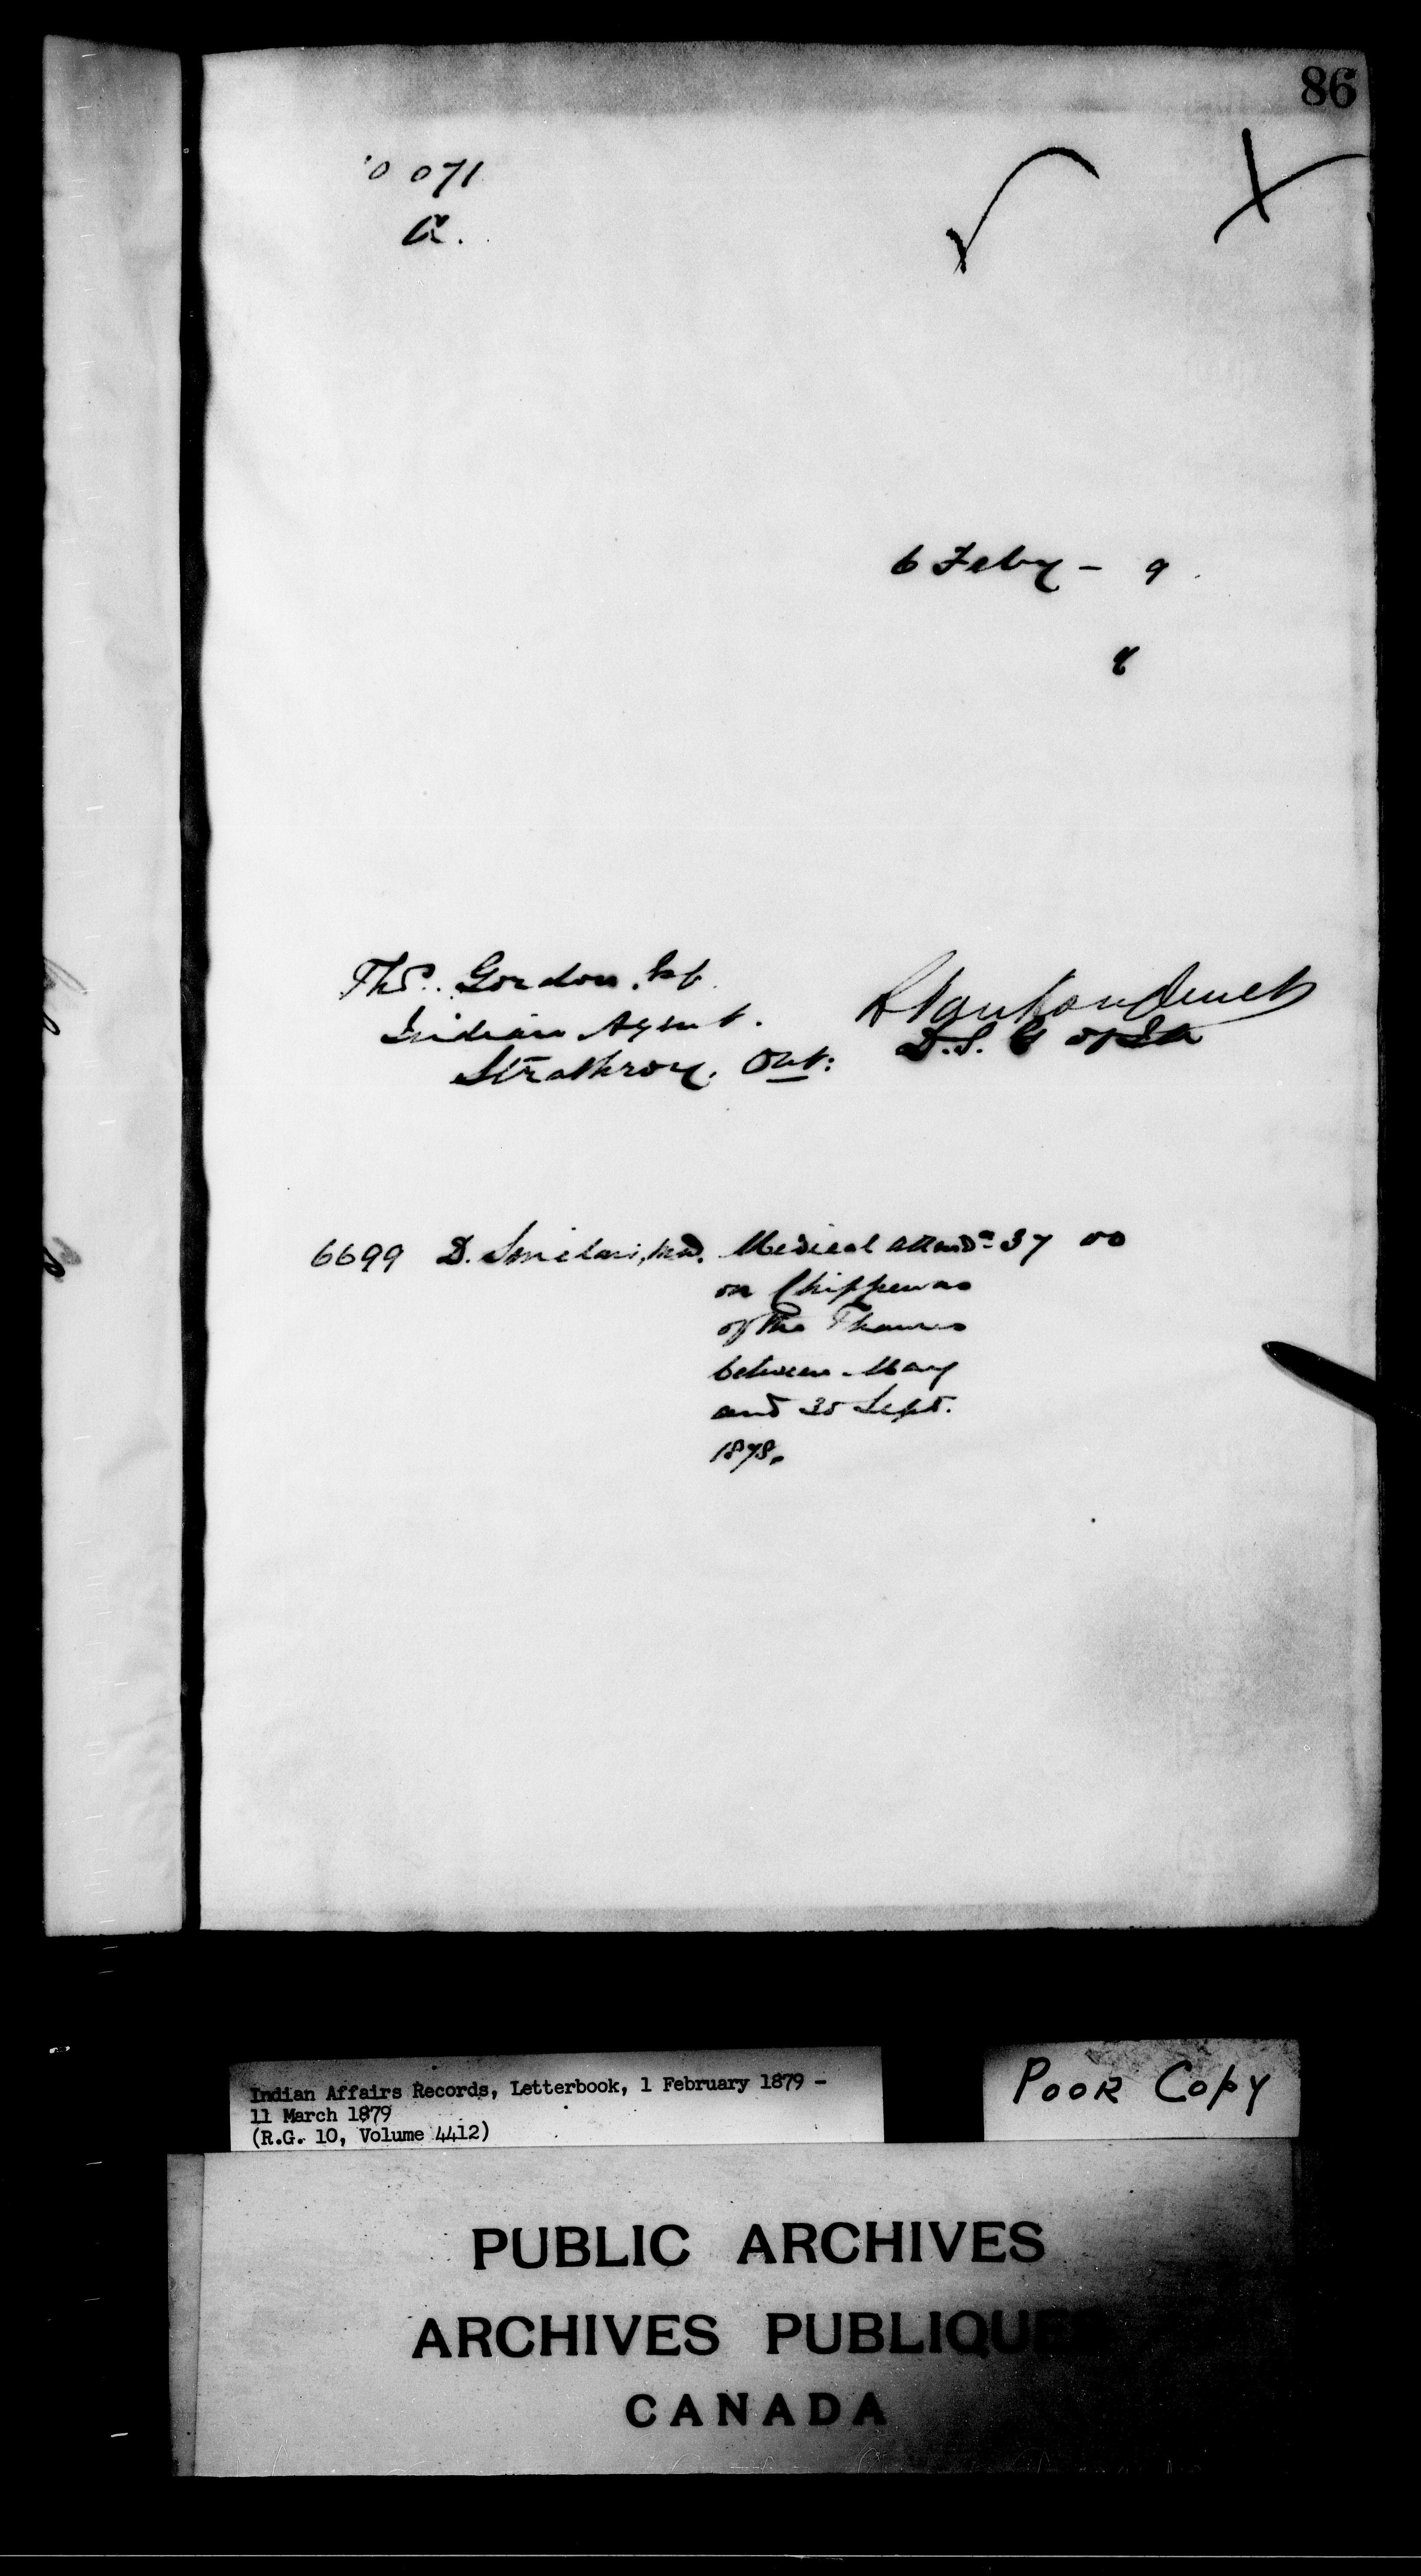 86
10 071
A.
6 Feby - 9
Thos. Gordon, Esq
Indian Agent.
Strathroy. Ont:
L Vankoughnet
D.S. G of IA
6699 D. Sinclair, M.D. Medical attendce 37 00
on Chippewas
of the Thames
between May
and 30 Sept.
1878.
Indian Affairs Records, Letterbook, 1 February 1879 -
11 March 1879
(R.G. 10, Volume 4412)
POOR COPY
PUBLIC ARCHIVES
ARCHIVES PUBLIQUES
CANADA